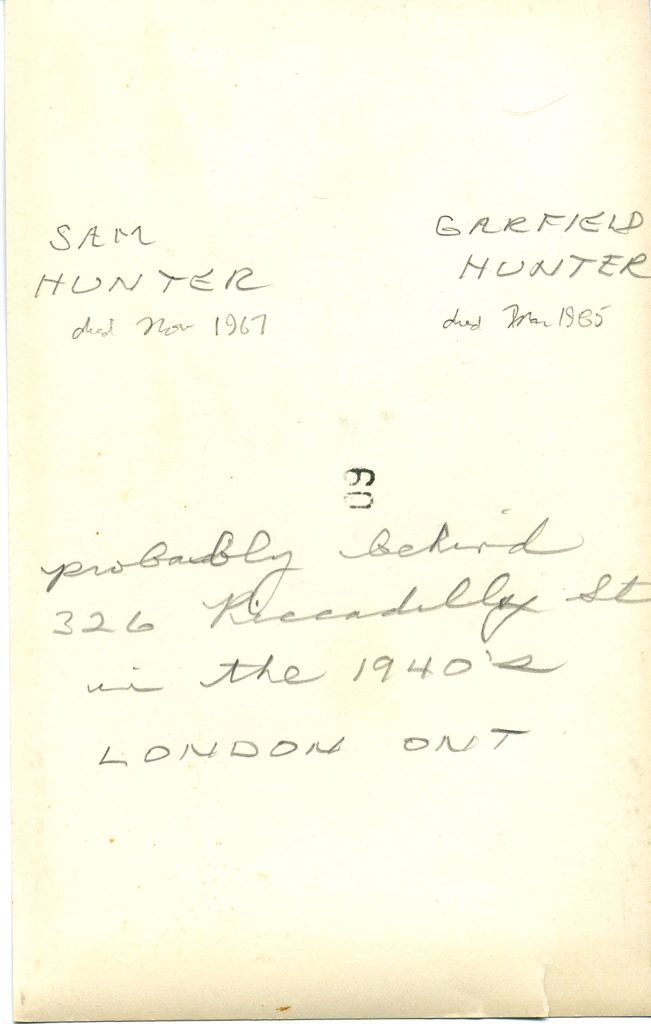 SAM
HUNTER
died Nov 1967
GARFIELD
HUNTER
died Mar 1985
60
probably behind
326 Piccadilly St
in the 1940's
LONDON ONT